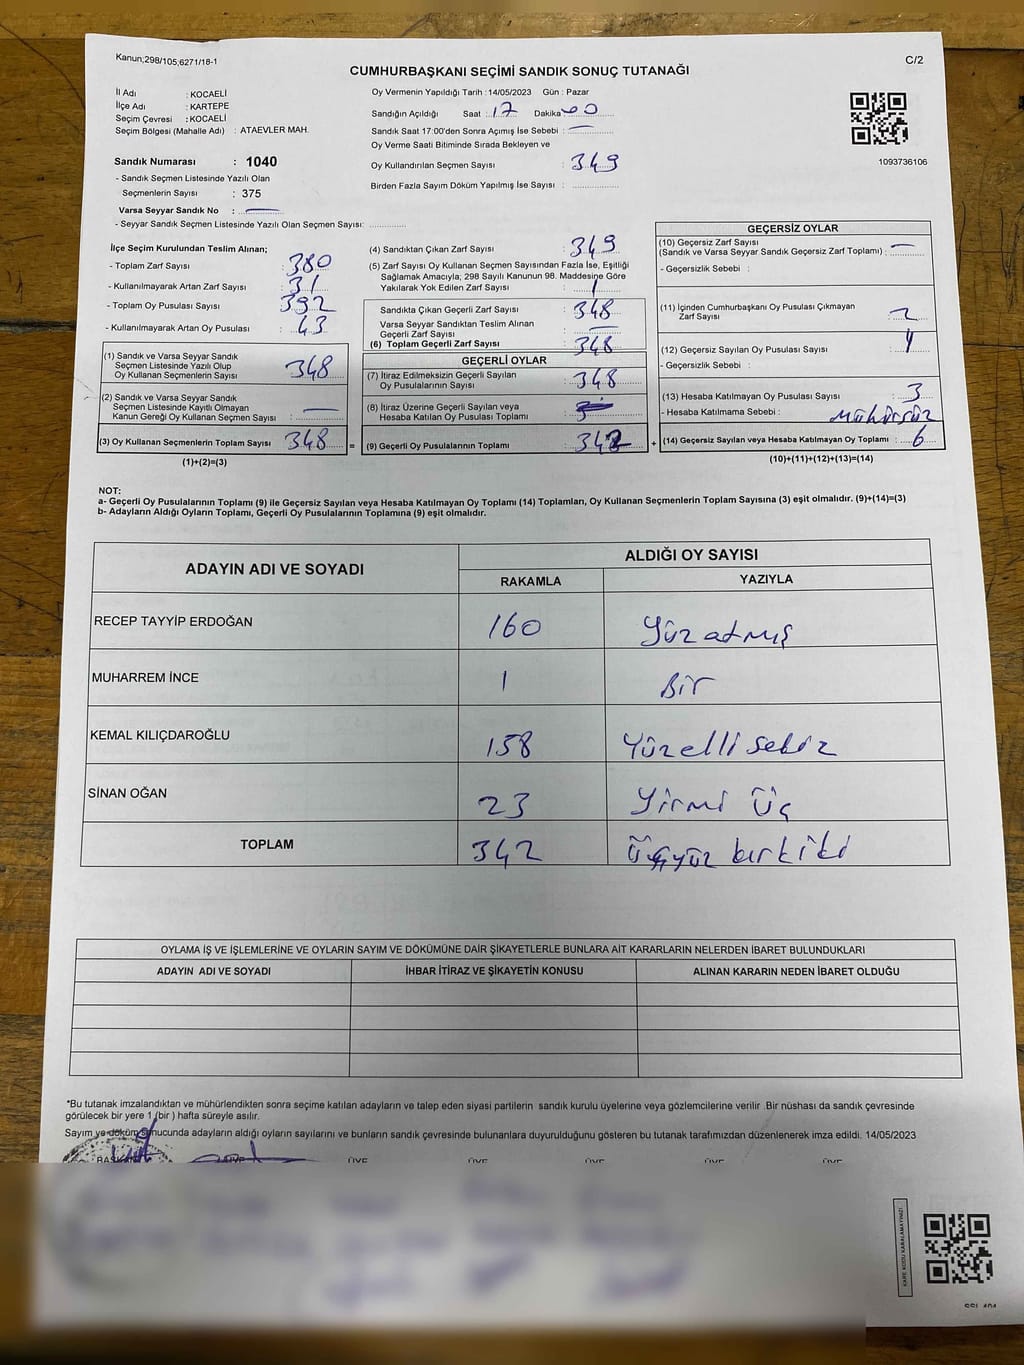 Kanun;298/105;6271/18-1
C/2
CUMHURBAŞKANI SEÇİMİ SANDIK SONUÇ TUTANAĞI
İl Adı : KOCAELİ
İlçe Adı : KARTEPE
Seçim Çevresi : KOCAELİ
Seçim Bölgesi (Mahalle Adı) : ATAEVLER MAH.
Sandık Numarası : 1040
- Sandık Seçmen Listesinde Yazılı Olan
Seçmenlerin Sayısı : 375
Varsa Seyyar Sandık No :
- Seyyar Sandık Seçmen Listesinde Yazılı Olan Seçmen Sayısı:
Oy Vermenin Yapıldığı Tarih : 14/05/2023 Gün : Pazar
Sandığın Açıldığı Saat : 17 Dakika 00
Sandık Saat 17:00'den Sonra Açımış İse Sebebi :
Oy Verme Saati Bitiminde Sırada Bekleyen ve
Oy Kullandırılan Seçmen Sayısı : 349
Birden Fazla Sayım Döküm Yapılmış İse Sayısı :
1093736106
İlçe Seçim Kurulundan Teslim Alınan;
- Toplam Zarf Sayısı : 380
- Kullanılmayarak Artan Zarf Sayısı : 31
- Toplam Oy Pusulası Sayısı : 392
- Kullanılmayarak Artan Oy Pusulası : 43
(1) Sandık ve Varsa Seyyar Sandık
Seçmen Listesinde Yazılı Olup
Oy Kullanan Seçmenlerin Sayısı : 348
(2) Sandık ve Varsa Seyyar Sandık
Seçmen Listesinde Kayıtlı Olmayan
Kanun Gereği Oy Kullanan Seçmen Sayısı :
(3) Oy Kullanan Seçmenlerin Toplam Sayısı : 348 =
(1)+(2)=(3)
(4) Sandıktan Çıkan Zarf Sayısı : 349
(5) Zarf Sayısı Oy Kullanan Seçmen Sayısından Fazla İse, Eşitliği
Sağlamak Amacıyla; 298 Sayılı Kanunun 98. Maddesine Göre
Yakılarak Yok Edilen Zarf Sayısı : 1
Sandıkta Çıkan Geçerli Zarf Sayısı : 348
Varsa Seyyar Sandıktan Teslim Alınan
Geçerli Zarf Sayısı :
(6) Toplam Geçerli Zarf Sayısı : 348
GEÇERLİ OYLAR
(7) İtiraz Edilmeksizin Geçerli Sayılan
Oy Pusulalarının Sayısı : 348
(8) İtiraz Üzerine Geçerli Sayılan veya
Hesaba Katılan Oy Pusulası Toplamı :
(9) Geçerli Oy Pusulalarının Toplamı : 342 +
GEÇERSİZ OYLAR
(10) Geçersiz Zarf Sayısı
(Sandık ve Varsa Seyyar Sandık Geçersiz Zarf Toplamı) :
- Geçersizlik Sebebi :
(11) İçinden Cumhurbaşkanı Oy Pusulası Çıkmayan
Zarf Sayısı : 2
(12) Geçersiz Sayılan Oy Pusulası Sayısı :
- Geçersizlik Sebebi :
(13) Hesaba Katılmayan Oy Pusulası Sayısı : 3
- Hesaba Katılmama Sebebi : Mühürsüz
(14) Geçersiz Sayılan veya Hesaba Katılmayan Oy Toplamı : 6
(10)+(11)+(12)+(13)=(14)
NOT:
a- Geçerli Oy Pusulalarının Toplamı (9) ile Geçersiz Sayılan veya Hesaba Katılmayan Oy Toplamı (14) Toplamları, Oy Kullanan Seçmenlerin Toplam Sayısına (3) eşit olmalıdır. (9)+(14)=(3)
b- Adayların Aldığı Oyların Toplamı, Geçerli Oy Pusulalarının Toplamına (9) eşit olmalıdır.
ADAYIN ADI VE SOYADI ALDIĞI OY SAYISI
RAKAMLA YAZIYLA
RECEP TAYYİP ERDOĞAN 160 Yüz atmış
MUHARREM İNCE 1 Bir
KEMAL KILIÇDAROĞLU 158 Yüzelli sekiz
SİNAN OĞAN 23 Yirmi Üç
TOPLAM 342 Üçyüz kırkiki
OYLAMA İŞ VE İŞLEMLERİNE VE OYLARIN SAYIM VE DÖKÜMÜNE DAİR ŞİKAYETLERLE BUNLARA AİT KARARLARIN NELERDEN İBARET BULUNDUKLARI
ADAYIN ADI VE SOYADI İHBAR İTİRAZ VE ŞİKAYETİN KONUSU ALINAN KARARIN NEDEN İBARET OLDUĞU
*Bu tutanak imzalandıktan ve mühürlendikten sonra seçime katılan adayların ve talep eden siyasi partilerin sandık kurulu üyelerine veya gözlemcilerine verilir .Bir nüshası da sandık çevresinde
görülecek bir yere 1 (bir ) hafta süreyle asılır.
Sayım ve döküm sonucunda adayların aldığı oyların sayılarını ve bunların sandık çevresinde bulunanlara duyurulduğunu gösteren bu tutanak tarafımızdan düzenlenerek imza edildi. 14/05/2023
BAŞKAN ÜYE ÜYE ÜYE ÜYE ÜYE ÜYE
KARE KODU KARALAMAYINIZ!